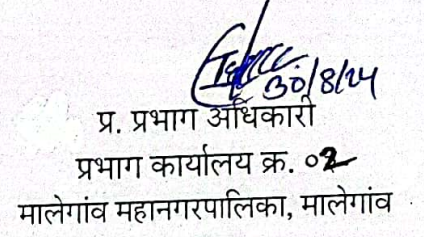 30/8/24
प्र. प्रभाग अधिकारी
प्रभाग कार्यालय क्र. ०२
मालेगांव महानगरपालिका, मालेगांव